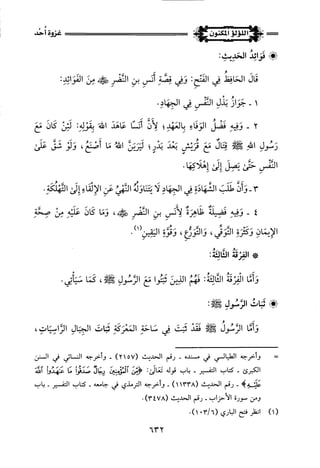 اللؤلؤ المكنون
غزوة أحد
فَوَائِدُ الحَدِيثِ:
قَالَ الحَافِظُ فِي الفَتْحِ: وَفِي قِصَّةِ أَنَسِ بنِ النَّضْرِ ﷺ مِنَ الفَوَائِدِ:
١ - جَوَازُ بَذْلِ النَّفْسِ فِي الجِهَادِ.
٢ - وَفِيهِ فَضْلُ الوَفَاءِ بِالعَهْدِ؛ لِأَنَّ أَنَسًا عَاهَدَ اللهَ بِقَوْلِهِ: لَئِنْ كَانَ مَعَ
رَسُولِ اللهِ ﷺ قِتَالٌ مَعَ قُرَيْشٍ بَعْدَ بَدْرٍ؛ لَيَرَيَنَّ اللهُ مَا أَصْنَعُ، وَلَوْ شَقَّ عَلَى
النَّفْسِ حَتَّى يَصِلَ إِلَى إِهْلَاكِهَا.
٣ - وَأَنَّ طَلَبَ الشَّهَادَةِ فِي الجِهَادِ لَا يَتَنَاوَلُهُ النَّهْيُ عَنِ الإِلْقَاءِ إِلَى التَّهْلُكَةِ.
٤ - وَفِيهِ فَضِيلَةٌ ظَاهِرَةٌ لِأَنَسِ بنِ النَّضْرِ، وَمَا كَانَ عَلَيْهِ مِنْ صِحَّةِ
الإِيمَانِ وَكَثْرَةِ التَّوَقِّي، وَالتَّوَرُّعِ، وَقُوَّةِ اليَقِينِ(١).
* الفِرْقَةُ الثَّالِثَةُ:
وَأَمَّا الفِرْقَةُ الثَّالِثَةُ: فَهُمُ الذِينَ ثَبَتُوا مَعَ الرَّسُولِ ﷺ، كَمَا سَيَأْتِي.
ثَبَاتُ الرَّسُولِ ﷺ:
وَأَمَّا الرَّسُولُ ﷺ فَقَدْ ثَبَتَ فِي سَاحَةِ المَعْرَكَةِ ثَبَاتَ الجِبَالِ الرَّاسِيَاتِ،
= وأخرجه الطيالسي في مسنده - رقم الحديث (٢١٥٧) - وأخرجه النسائي في السنن
الكبرى - كتاب التفسير - باب قوله تعالى: ﴿مِّنَ الْمُؤْمِنِينَ رِجَالٌ صَدَقُوا مَا عَاهَدُوا اللَّهَ
عَلَيْهِ﴾ - رقم الحديث (١١٣٣٨) - وأخرجه الترمذي في جامعه - كتاب التفسير - باب
ومن سورة الأحزاب - رقم الحديث (٣٤٧٨).
(١) انظر فتح الباري (١٠٣/٦).
٦٣٢